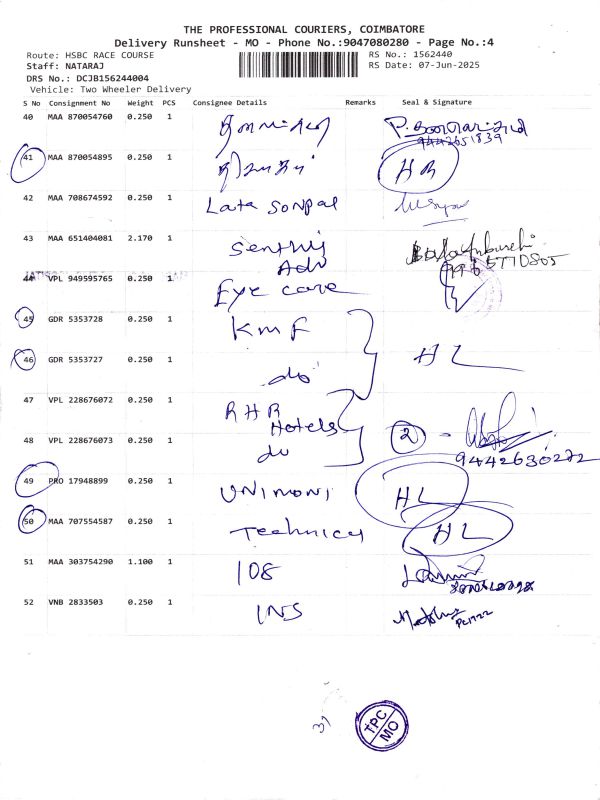 THE PROFESSIONAL COURIERS, COIMBATORE
Delivery Runsheet - MO - Phone No.:9047080280 - Page No.:4
Route: HSBC RACE COURSE RS No.: 1562440
Staff: NATARAJ RS Date: 07-Jun-2025
DRS No.: DCJB156244004
Vehicle: Two Wheeler Delivery
S No Consignment No Weight PCS Consignee Details Remarks Seal & Signature
40 MAA 870054760 0.250 1
9442651839
41 MAA 870054895 0.250 1 HR
42 MAA 708674592 0.250 1 Lata Sonpal
43 MAA 651404081 2.170 1 Senthij
Adv
44 VPL 949595765 0.250 1 Eye care
45 GDR 5353728 0.250 1 KMF
46 GDR 5353727 0.250 1 do HL
47 VPL 228676072 0.250 1 RHR
Hotels
48 VPL 228676073 0.250 1 do 2 -
9442630272
49 PRO 17948899 0.250 1 UNIMONI HL
50 MAA 707554587 0.250 1 Technica HL
51 MAA 303754290 1.100 1 108
52 VNB 2833503 0.250 1 INS
TPC
MO